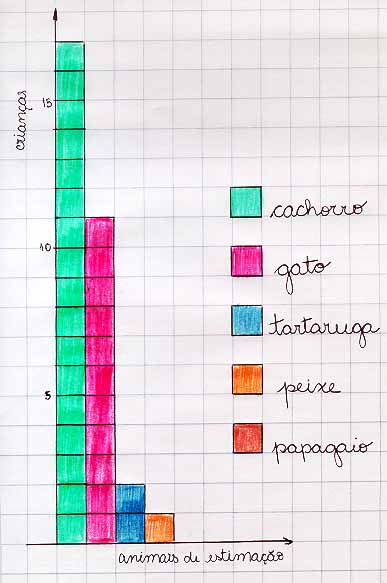 crianças
15
10
5
cachorro
gato
tartaruga
peixe
papagaio
animais de estimação